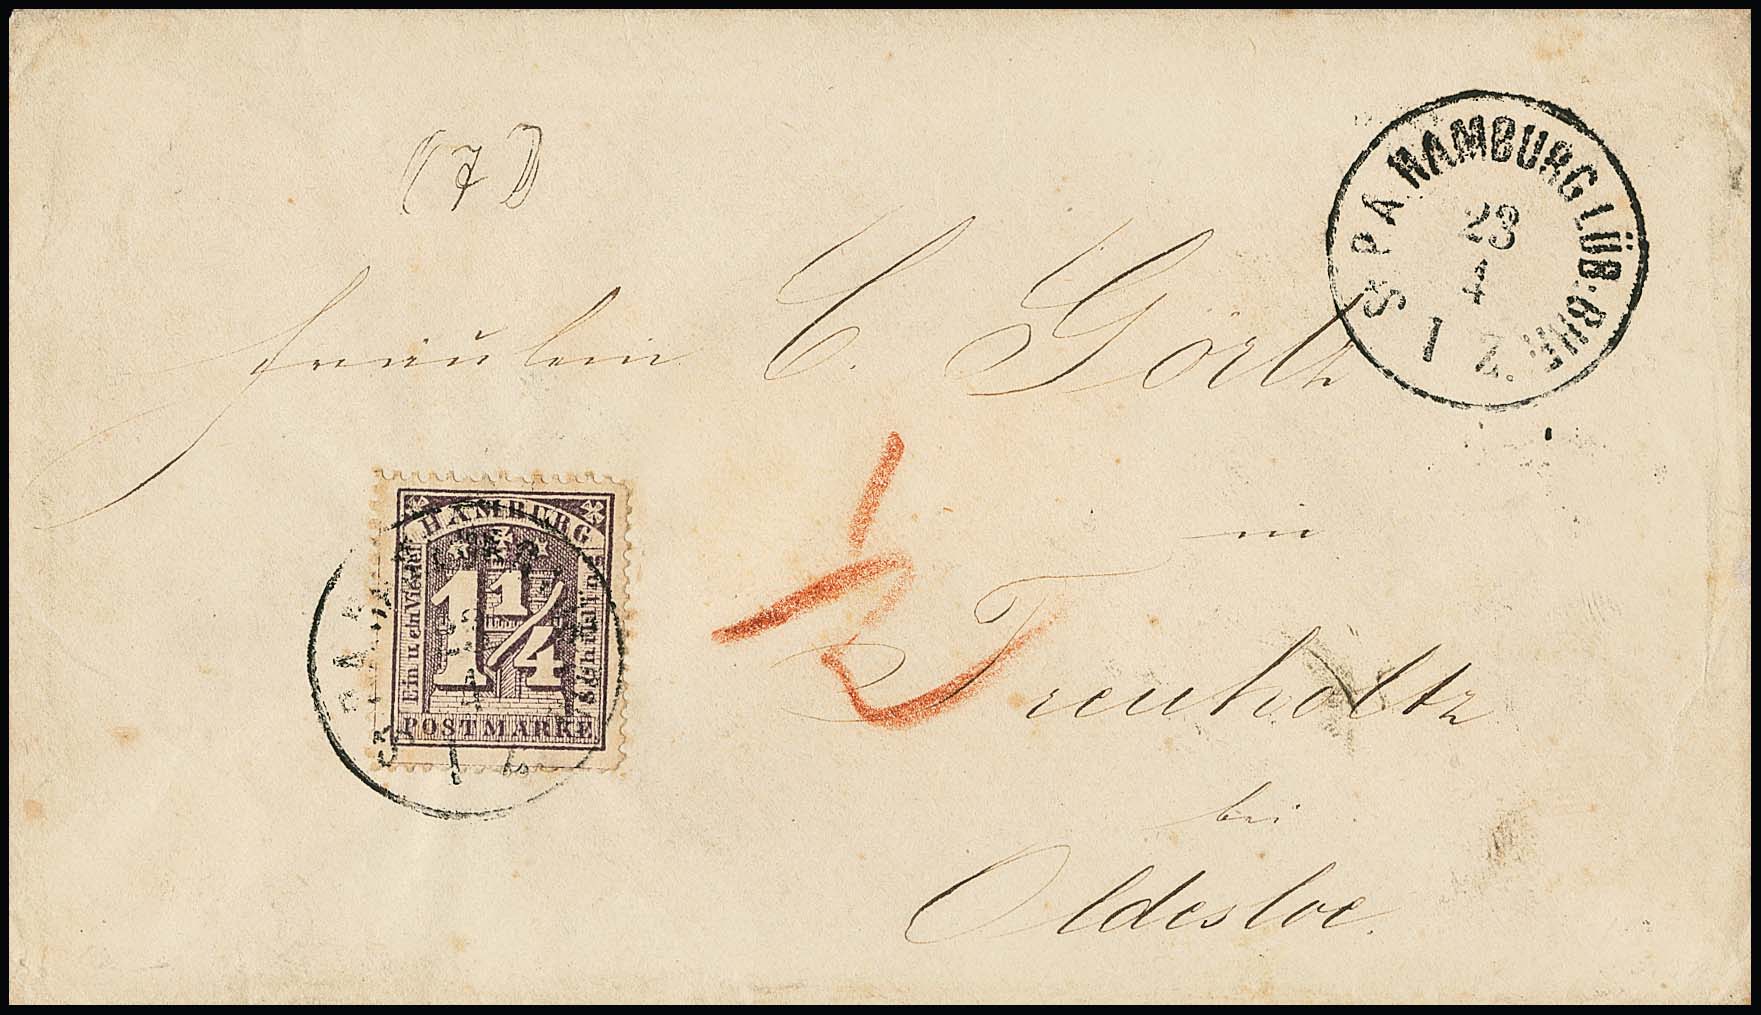 (7)
S P A HAMBURG LÜB: BHF:
23
4
1 Z.
Fräulein C. Görtz
in
Treuholtz
bei
Oldesloe.
1/2
HAMBURG
Ein u. ein Viertel
1 1/4
Schilling
POSTMARKE